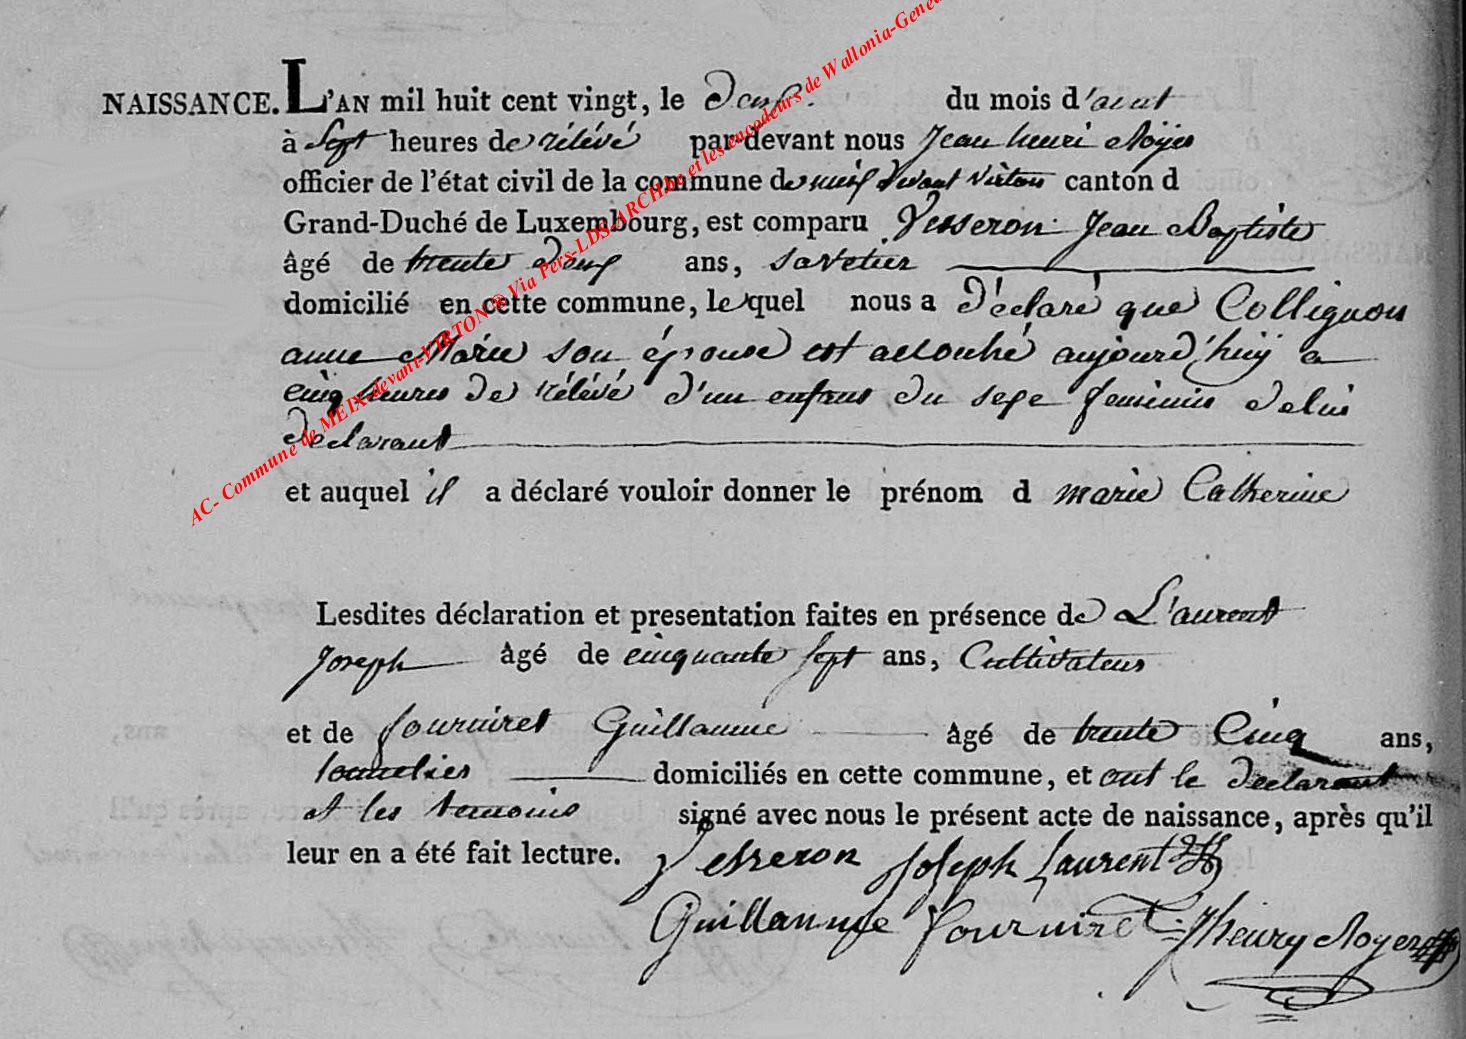 NAISSANCE. L'AN mil huit cent vingt, le deux du mois d'aout
à Sept heures de rélévé par-devant nous Jean henri Noyer
officier de l'état civil de la commune de meix devant virton canton d
Grand-Duché de Luxembourg, est comparu Vesseron Jean Baptiste
âgé de trente deux ans, savetier
domicilié en cette commune, lequel nous a déclaré que Collignon
anne Marie son épouse est accouché aujourd'huy a
cinq heures de rélévé d'un enfant du sexe feminin de lui
declarant
et auquel il a déclaré vouloir donner le prénom d marie Catherine
Lesdites déclaration et presentation faites en présence de L'aurent
Joseph âgé de cinquante sept ans, Cultivateur
et de fourniret Guillaume âgé de trente Cinq ans,
tonnelier domiciliés en cette commune, et ont le declarant
et les temoins signé avec nous le présent acte de naissance, après qu'il
leur en a été fait lecture. Vesseron Joseph Laurent
Guillaume fourniret Jhenry Noyer
AC- Commune de MEIX-devant-VIRTON® Via Pers-LDS-ARCH.be et les encodeurs de Wallonia-Genea